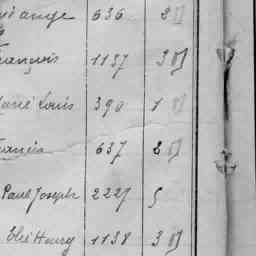 ange 636 2
François 1137 3
Louis 390 1
Francis 637 2
Paul Joseph 2227 5
Elie Henry 1138 3